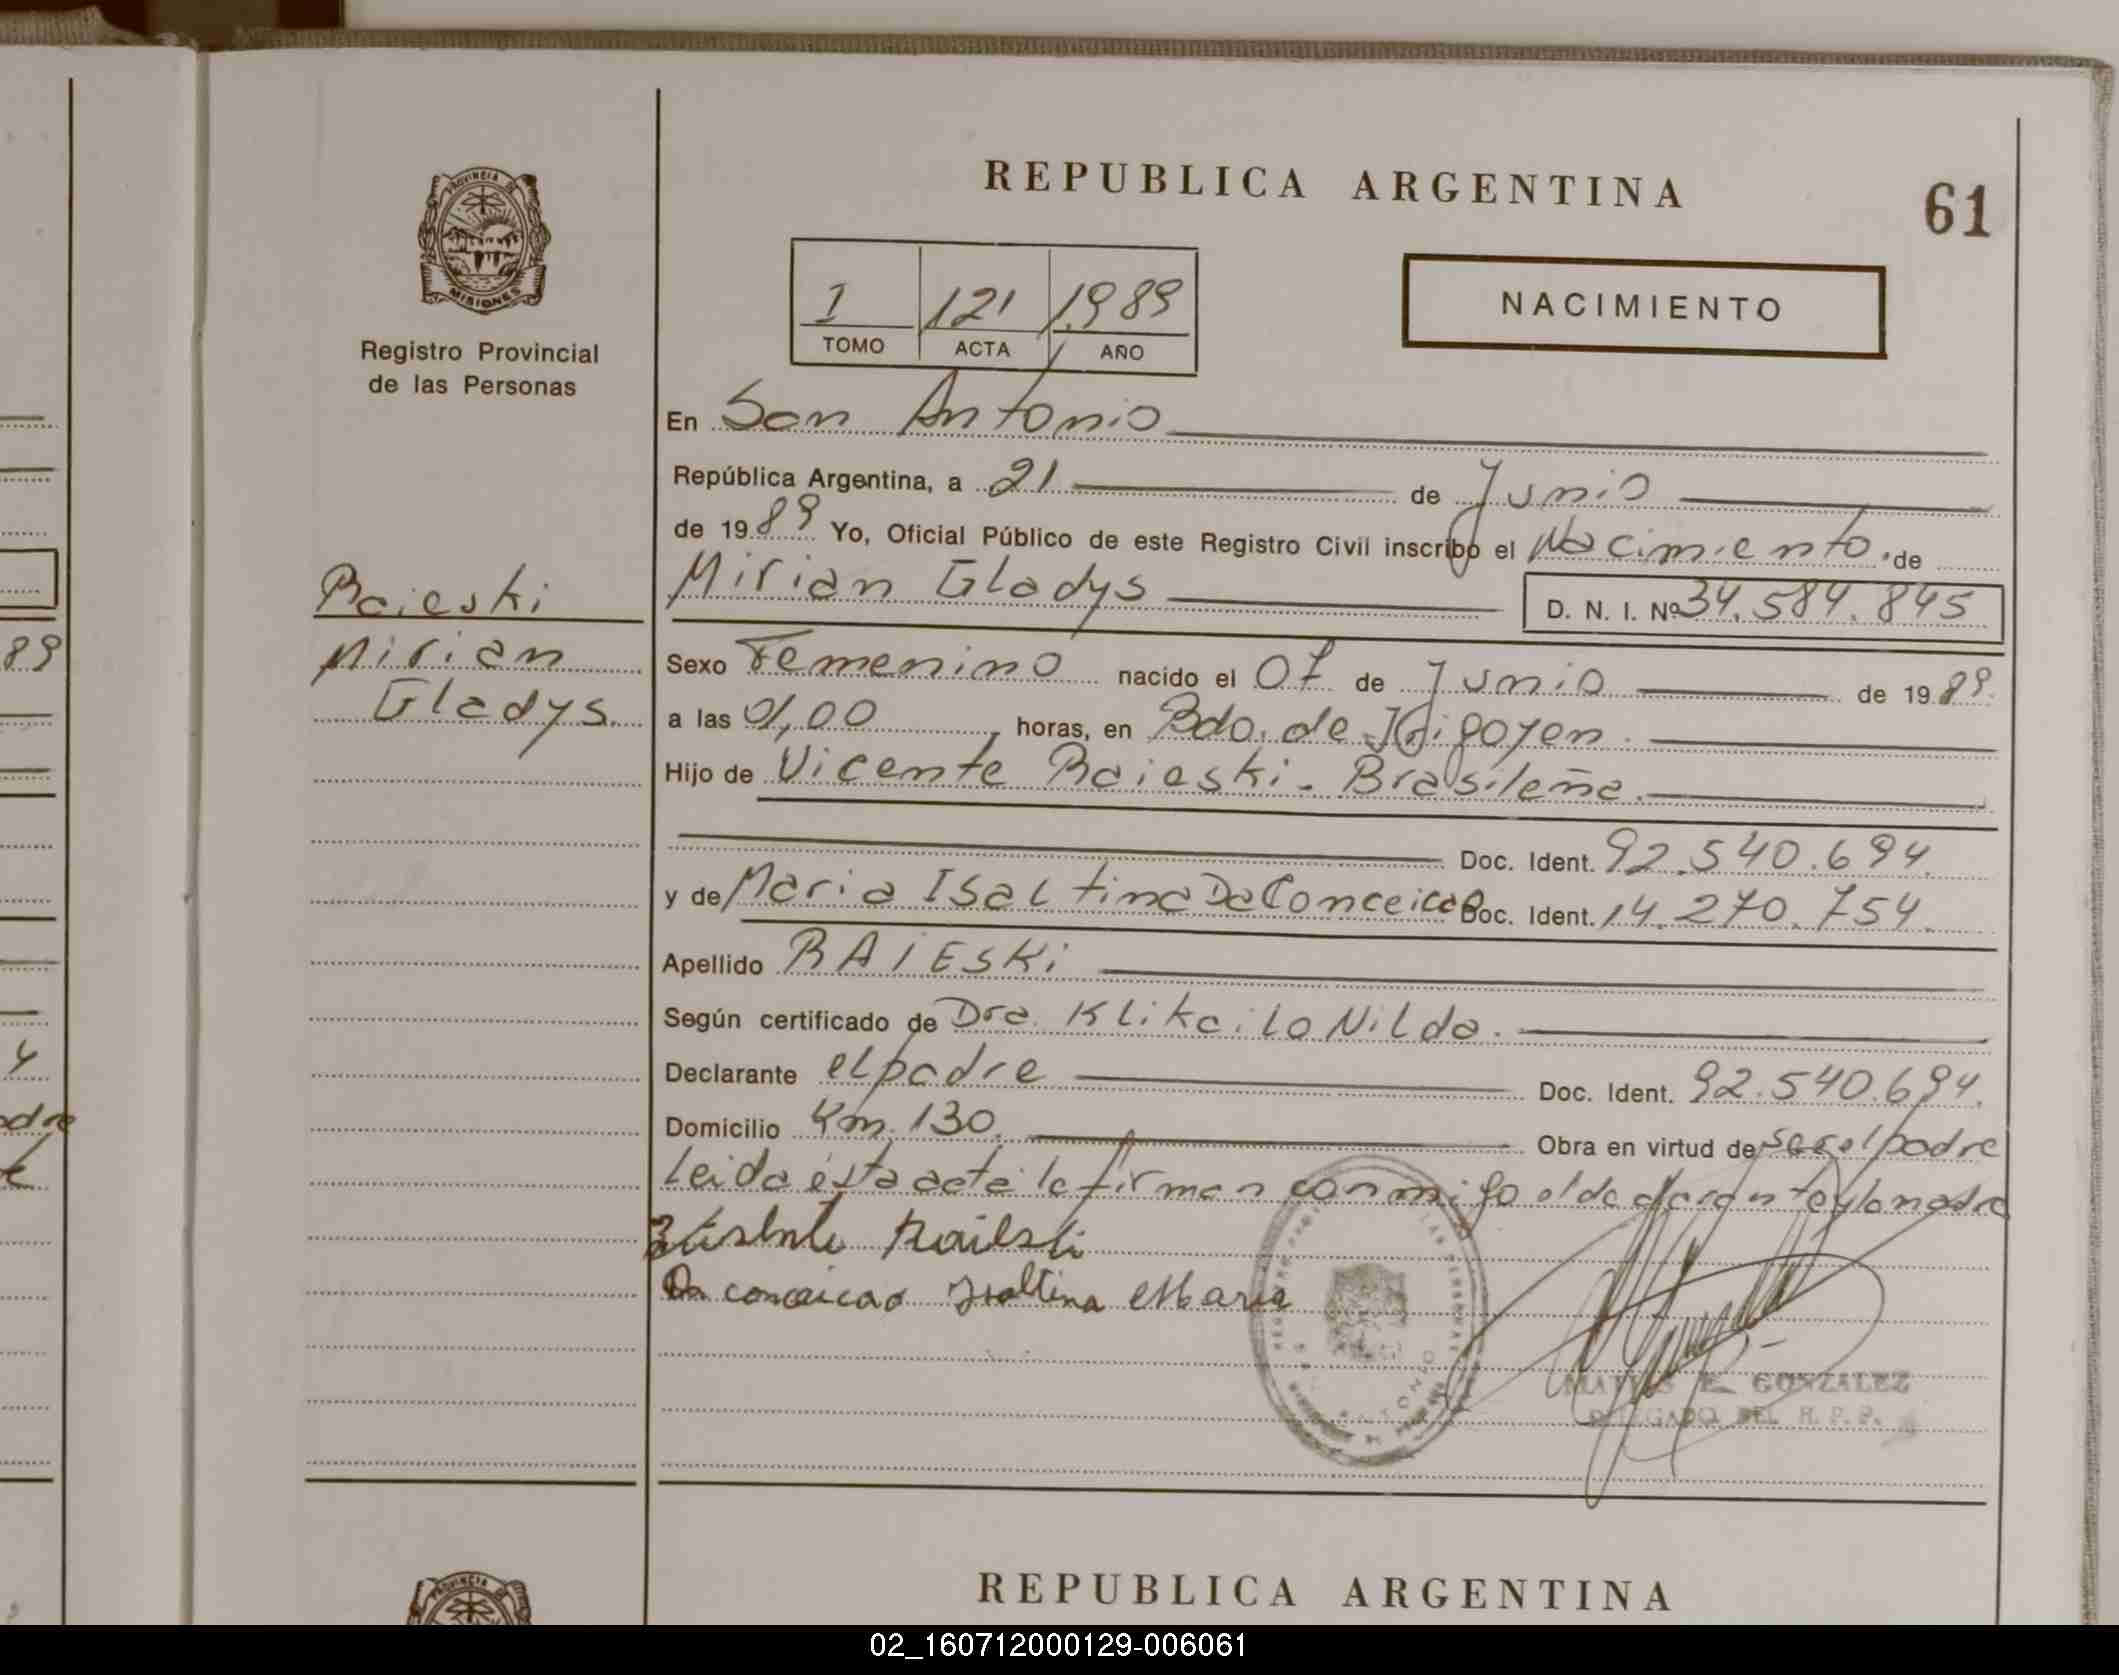 REPUBLICA ARGENTINA
61
PROVINCIA DE
MISIONES
Registro Provincial
de las Personas
I 121 1.989
TOMO ACTA AÑO
NACIMIENTO
En San Antonio
República Argentina, a 21 de Junio
de 1989 Yo, Oficial Público de este Registro Civil inscribo el Nacimiento. de
Mirian Gladys D. N. I. Nº 34.584.845
Baieski
Mirian
Gladys.
Sexo Femenino nacido el 07 de Junio de 1989.
a las 01,00 horas, en Bdo. de Irigoyen.
Hijo de Vicente Baieski. Brasileña.
Doc. Ident. 92.540.694.
y de Maria Isaltina Da Conceicao Doc. Ident. 14.270.754.
Apellido BAIESKi
Según certificado de Dra. Klikailo Nilda.
Declarante el padre Doc. Ident. 92.540.694.
Domicilio Km. 130. Obra en virtud de ser el padre
Leida ésta acta la firman conmigo el declarante y la madre
Da conceicao Isaltina Maria
MATIAS E. GONZALEZ
DELGADO DEL R. P. P.
89
4
REPUBLICA ARGENTINA
PROVINCIA DE
02_160712000129-006061